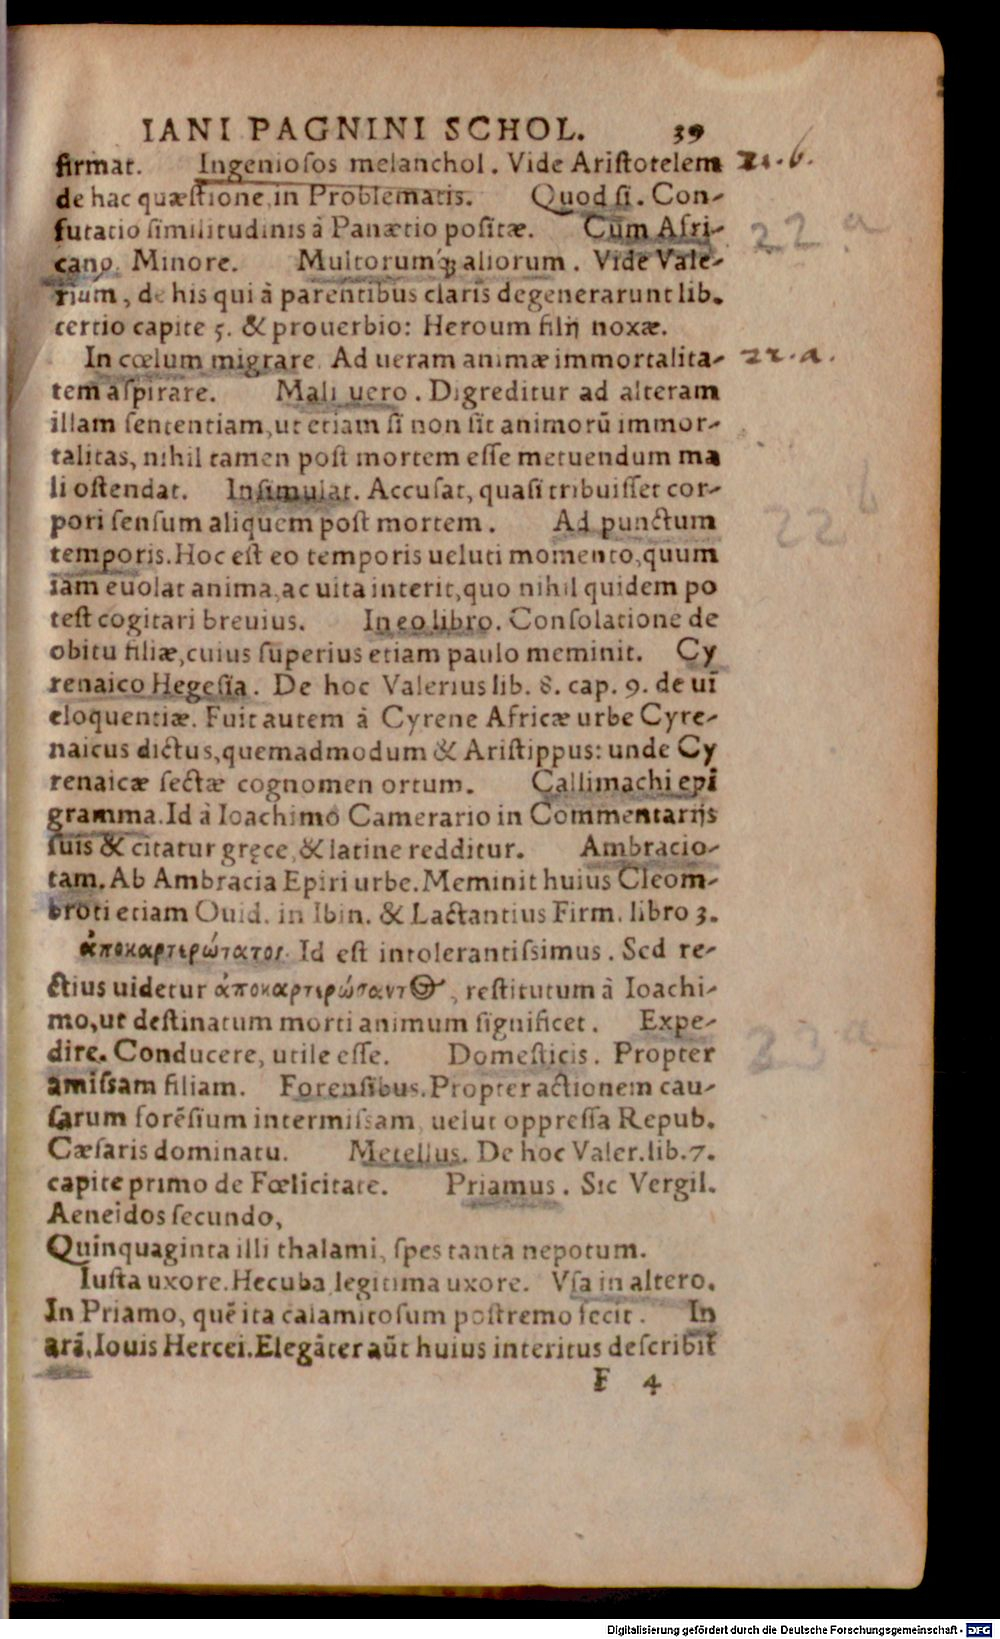 IANI PAGNINI SCHOL. 39
firmat. Ingeniosos melanchol. Vide Aristotelem 21.b.
de hac quæstione in Problematis. Quod si. Con-
futatio similitudinis à Panætio positæ. Cum Afri- 22 a
cano. Minore. Multorumq́; aliorum. Vide Vale-
rium, de his qui à parentibus claris degenerarunt lib.
tertio capite 5. & prouerbio: Heroum filij noxæ.
In cœlum migrare. Ad ueram animæ immortalita- 22.a.
tem aspirare. Mali uero. Digreditur ad alteram
illam sententiam, ut etiam si non sit animorũ immor-
talitas, nihil tamen post mortem esse metuendum ma
li ostendat. Insimulat. Accusat, quasi tribuisset cor-
pori sensum aliquem post mortem. Ad punctum 22 b
temporis. Hoc est eo temporis ueluti momento, quum
iam euolat anima, ac uita interit, quo nihil quidem po
test cogitari breuius. In eo libro. Consolatione de
obitu filiæ, cuius superius etiam paulo meminit. Cy
renaico Hegesia. De hoc Valerius lib. 8. cap. 9. de ui
eloquentiæ. Fuit autem à Cyrene Africæ urbe Cyre-
naicus dictus, quemadmodum & Aristippus: unde Cy
renaicæ sectæ cognomen ortum. Callimachi epi
gramma. Id à Ioachimo Camerario in Commentarijs
suis & citatur gręce, & latine redditur. Ambracio-
tam. Ab Ambracia Epiri urbe. Meminit huius Cleom-
broti etiam Ouid. in Ibin. & Lactantius Firm. libro 3.
ἀποκαρτερώτατος. Id est intolerantissimus. Sed re-
ctius uidetur ἀποκαρτερώσαντος, restitutum à Ioachi-
mo, ut destinatum morti animum significet. Expe-
dire. Conducere, utile esse. Domesticis. Propter 23 a
amissam filiam. Forensibus. Propter actionem cau-
sarum forẽsium intermissam, uelut oppressa Repub.
Cæsaris dominatu. Metellus. De hoc Valer. lib. 7.
capite primo de Fœlicitate. Priamus. Sic Vergil.
Aeneidos secundo,
Quinquaginta illi thalami, spes tanta nepotum.
Iusta uxore. Hecuba legitima uxore. Vsa in altero.
In Priamo, quẽ ita calamitosum postremo fecit. In
arã. Iouis Hercei. Elegãter aũt huius interitus describit
F 4
Digitalisierung gefördert durch die Deutsche Forschungsgemeinschaft - DFG